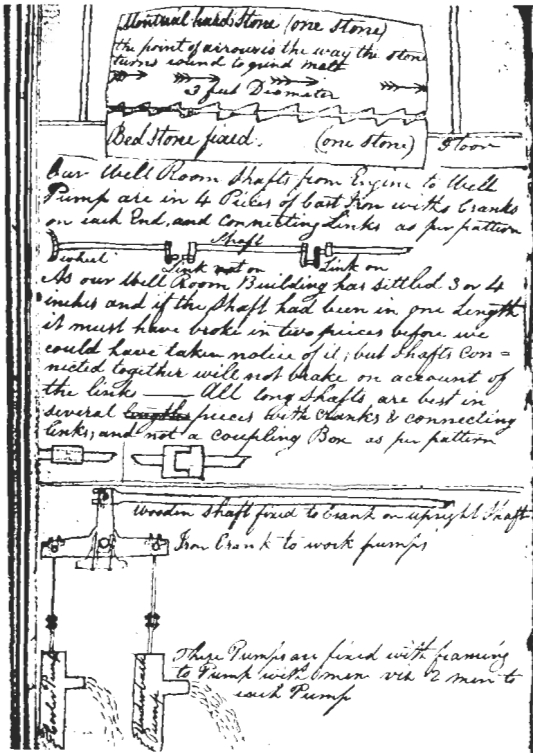 Montreal hard Stone (one Stone)
the point of arrows is the way the stone
turns round to grind malt
3 feet Diameter
Bed Stone fixed. (one Stone) Floor
Our Well Room Shafts from Engine to Well
Pump are in 4 Pieces of Cast Iron with Cranks
on each End, and connecting Links as per pattern
Shaft
wheel Link not on Link on
As our Well Room Building has sittled 3 or 4
inches and if the Shaft had been in one Length
it must have broke in two pieces before we
could have taken notice of it; but Shafts con=
nicted together will not brake on account of
the link — All long Shafts are best in
several lengths pieces with cranks & connecting
links; and not a coupling Box as per pattern
Wooden Shaft fixed to Crank on upright Shaft
Iron Crank to work pumps
These Pumps are fixed with framing
to Pump with men viz 2 men to
each Pump
Cooler Pump
Underback Pump